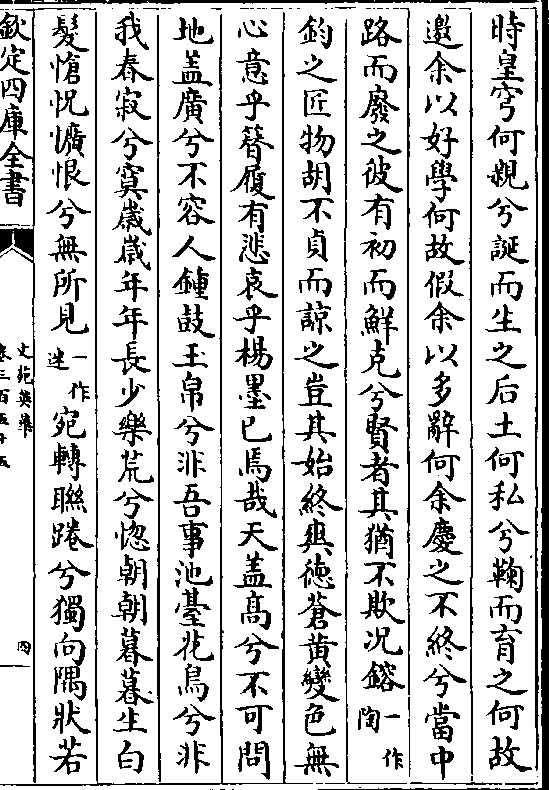 時皇穹何親兮誕而生之后土何私兮鞠而育之何故
邀余以好學何故假余以多辭何余慶之不終兮當中
路而廢之彼有初而鮮克兮賢者其猶不欺况鎔一作陶
鈞之匠物胡不貞而諒之豈其始終爽徳蒼黄變色無
心意乎簪履有悲哀乎楊墨已焉哉天盖髙兮不可問
地盖廣兮不容人鍾鼓玉帛兮非吾事池臺花鳥兮非
我春寂兮寞歳歳年年長少樂荒兮惚朝朝暮暮生白
髮愴怳懭悢兮無所見一作逑宛轉聯踡兮獨向隅狀若
欽定四庫全書
文苑英華
卷三百五十五
四